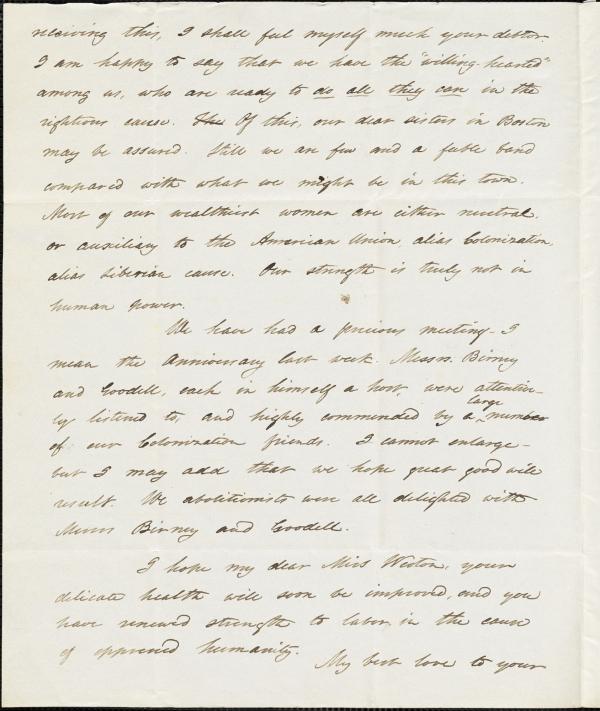 receiving this, I shall feel myself much your debtor.
I am happy to say that we have the "willing-hearted"
among us, who are ready to do all they can in the
righteous cause. The Of this, our dear sisters in Boston
may be assured. Still we are few and a feeble band
compared with what we might be in this town.
Most of our wealthiest women are either neutral,
or auxiliary to the American Union, alias Colonization,
alias Liberian cause. Our strength is truly not in
human power.
We have had a precious meeting - I
mean the Anniversary last week. Messrs. Birney
and Goodell, each in himself a host, were attentive-
ly listened to, and highly commended by a large number
of our Colonization friends. I cannot enlarge -
but I may add that we hope great good will
result. We abolitionists were all delighted with
Messrs Birney and Goodell.
I hope my dear Miss Weston, your
delicate health will soon be improved, and you
have renewed strength to labor in the cause
of oppressed humanity.
My best love to your